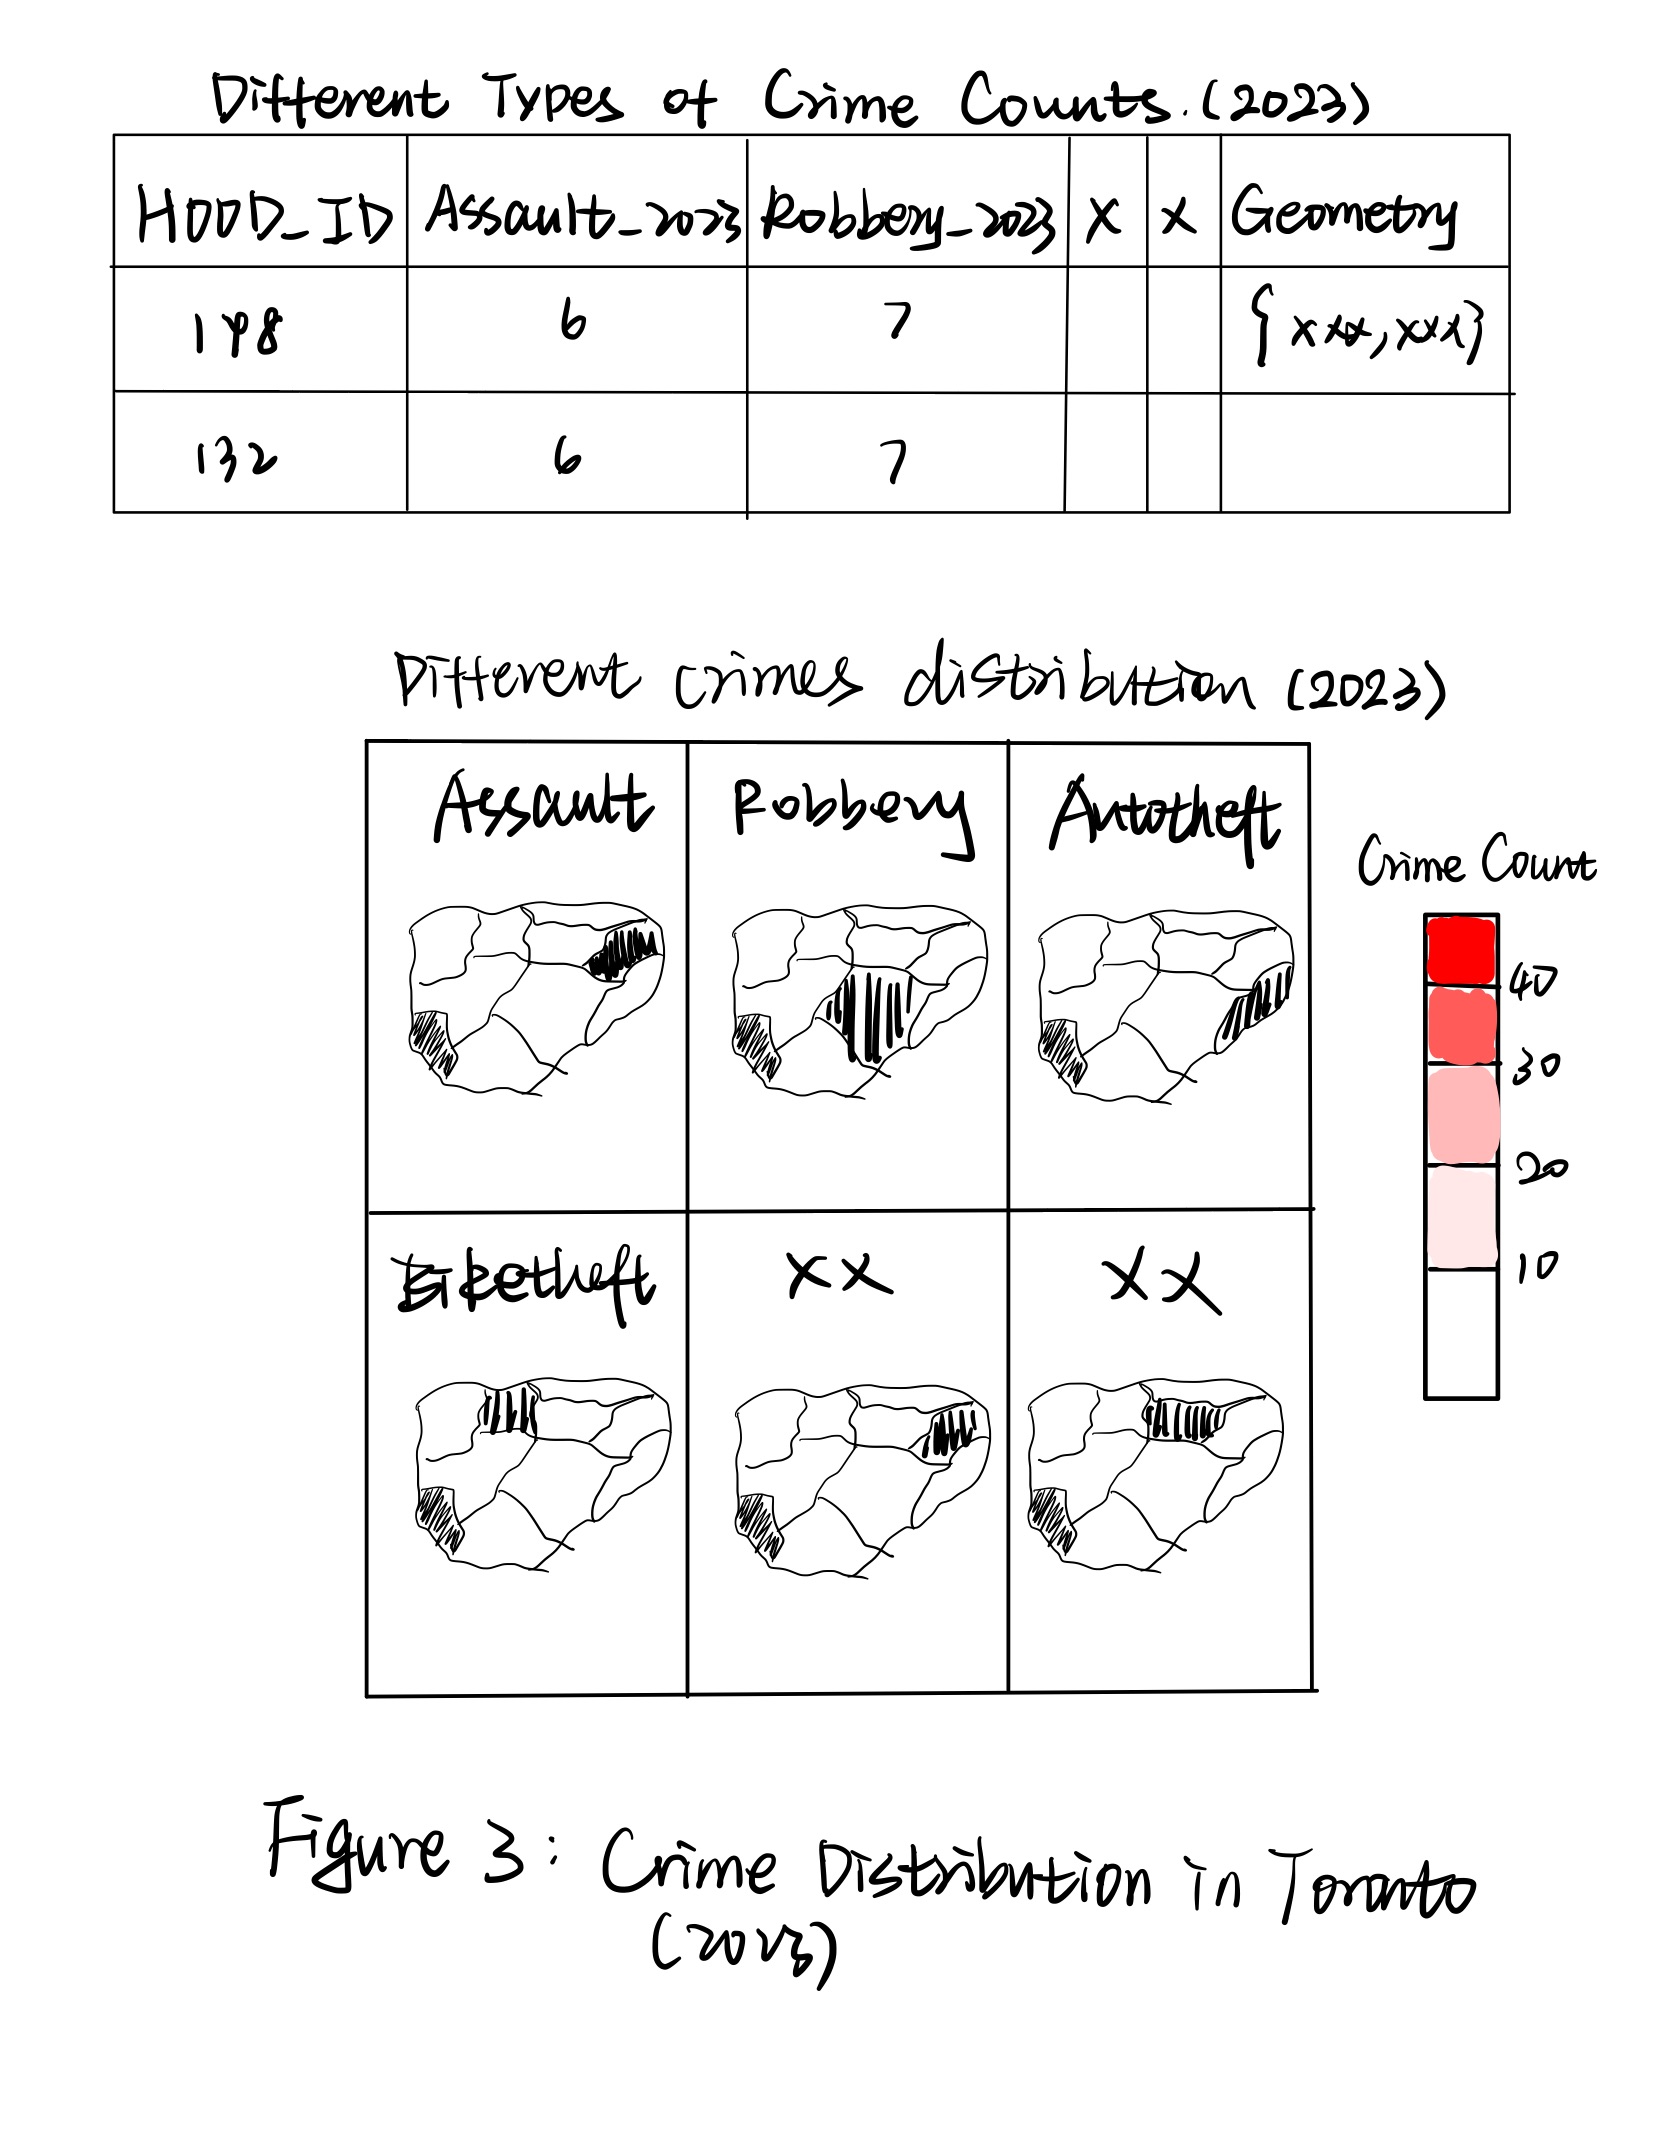 Different Types of Crime Counts. (2023)
HOOD_ID Assault_2023 Robbery_2023 X X Geometry
148 6 7 { xxx, xxx}
132 6 7
Different crimes distribution (2023)
Assault Robbery Autotheft
Crime Count
40
30
20
10
Biketheft XX XX
Figure 3: Crime Distribution in Toronto
(2023)